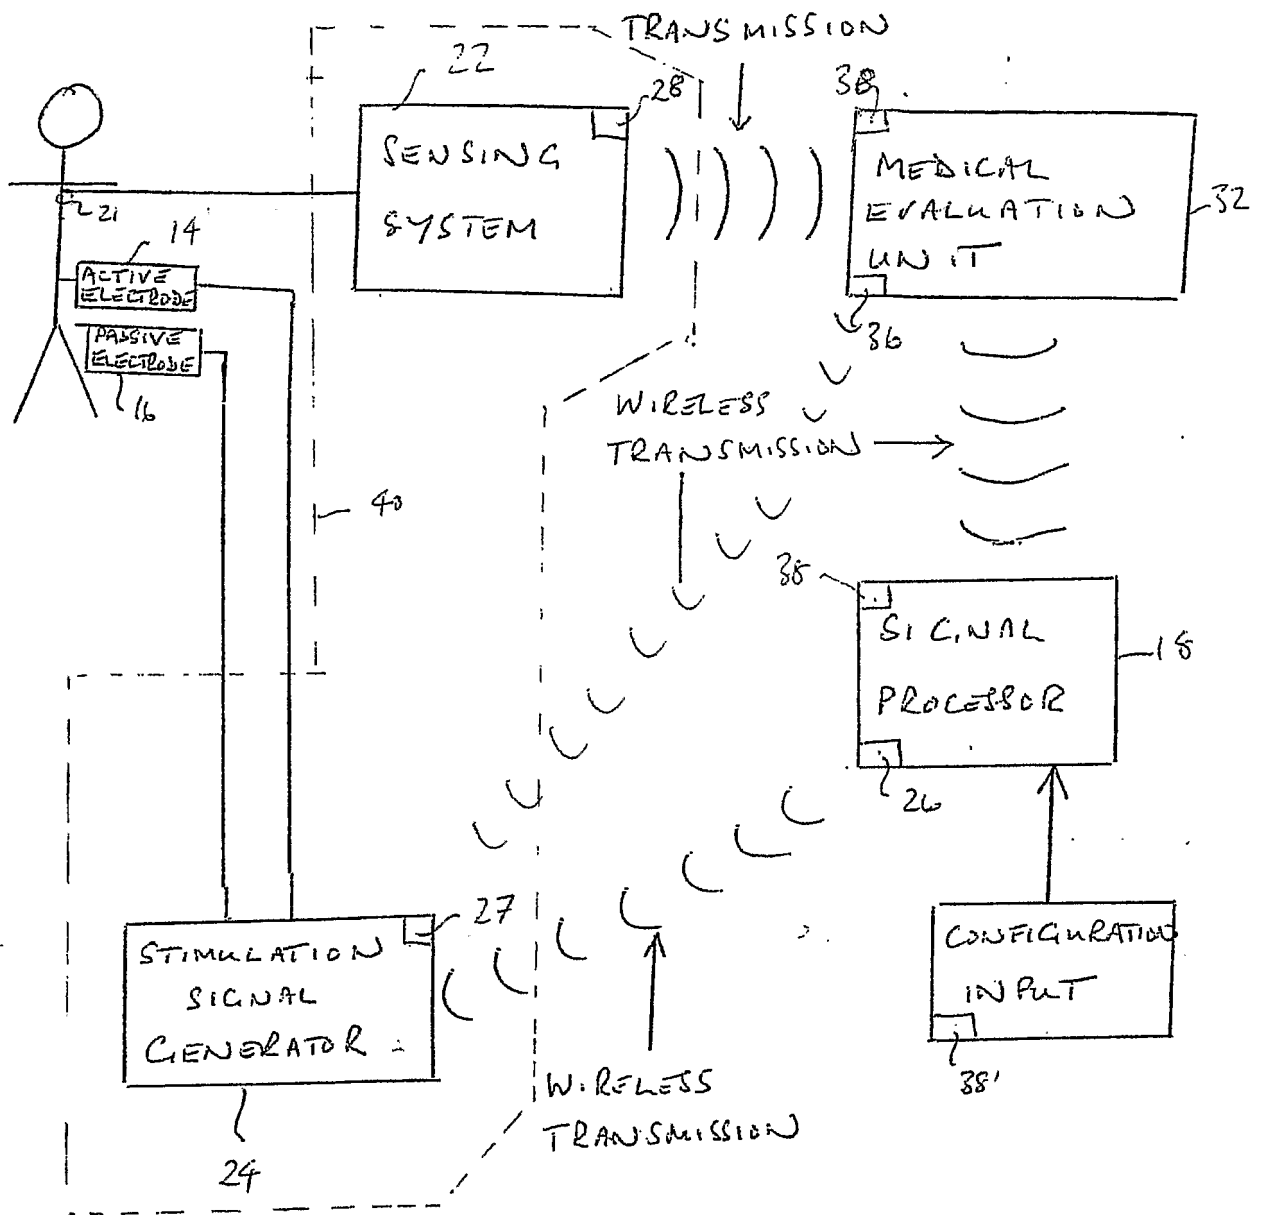 TRANSMISSION
22
28
38
SENSING
SYSTEM
MEDICAL
EVALUATION
UNIT
32
21
14
ACTIVE
ELECTRODE
PASSIVE
ELECTRODE
16
36
WIRELESS
TRANSMISSION
40
38
SIGNAL
PROCESSOR
18
26
27
STIMULATION
SIGNAL
GENERATOR
CONFIGURATION
INPUT
38'
WIRELESS
TRANSMISSION
24